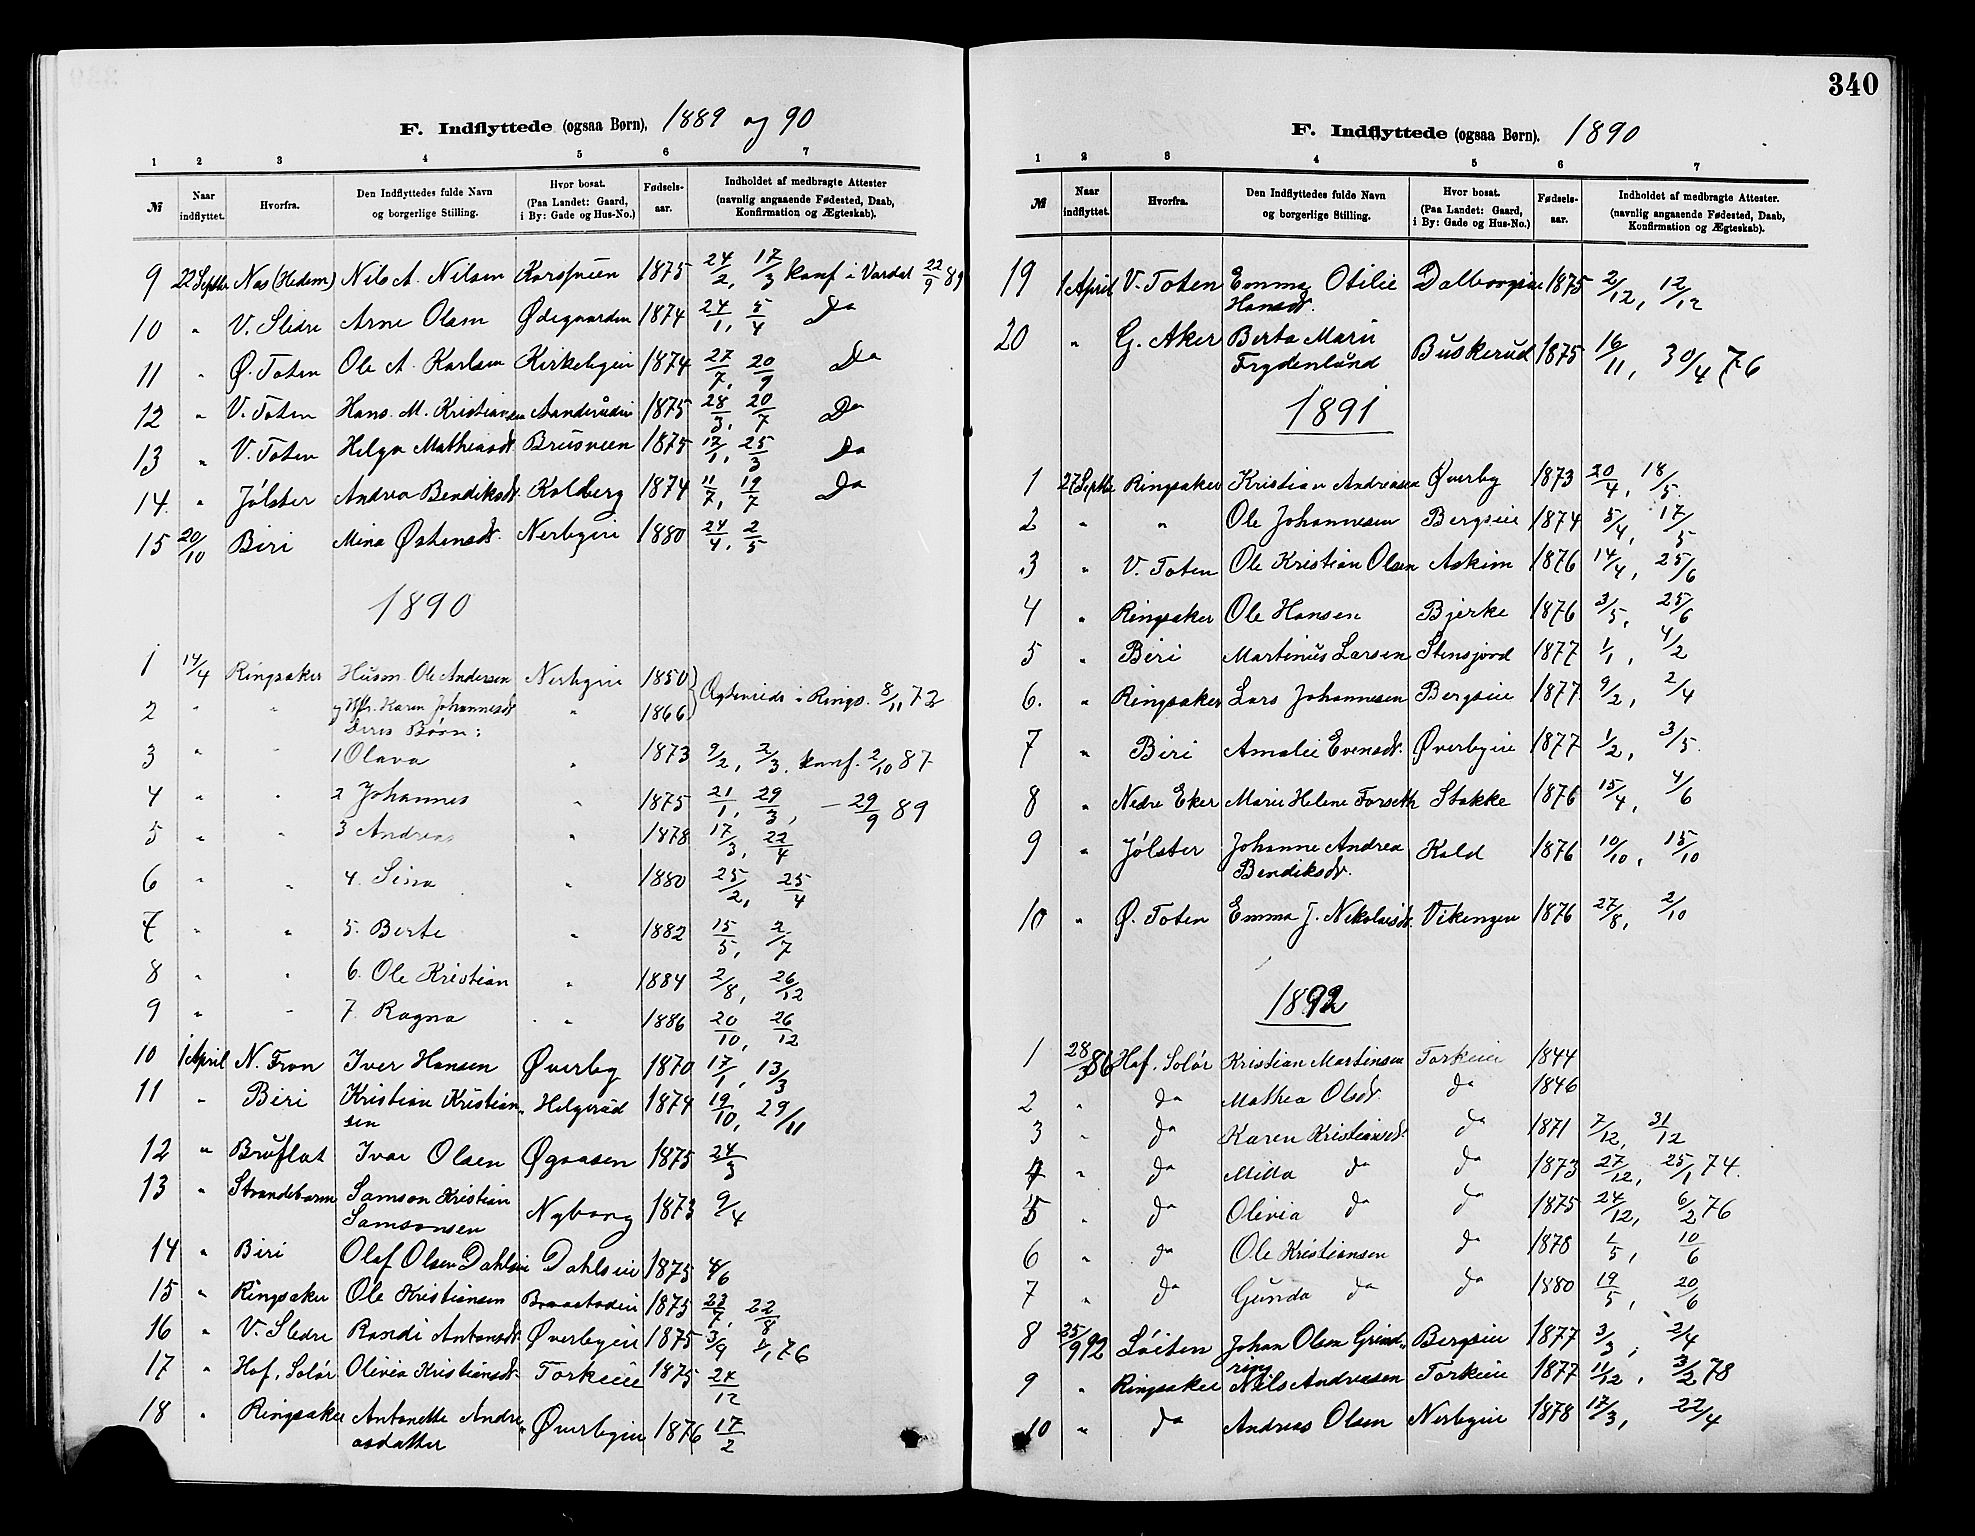 F. Indflyttede (ogsaa Børn), 1889 og 90
1 2 3 4 5 6 7
№ Naar indflyttet. Hvorfra. Den Indflyttedes fulde Navn og borgerlige Stilling. Hvor bosat. (Paa Landet: Gaard, i By: Gade og Hus-No.) Fødsels-aar. Indholdet af medbragte Attester (navnlig angaaende Fødested, Daab, Konfirmation og Ægteskab).
9 22 Septbr Nes (Hedem) Nils A. Nilsen 1875 24/2, 17/3 konf i Vardal 22/9 89
10 " V. Slidre Arne Olsen Ødegaarden 1874 24/1, 5/4 Do
11 " Ø. Toten Ole A. Karlsen Kirkebyeie 1874 27/7, 20/9 Do
12 " V. Toten Hans M. Kristiansen 1875 28/3, 20/7 Do
13 " V. Toten Helga Mathiasdt Brusveen 1875 17/1, 25/3 Do
14 " Jølster Andrea Bendiksdt Kolberg 1874 11/7, 19/7 Do
15 20/10 Biri Mina Østensdt. Nerbyeie 1880 24/4, 2/5
1890
1 14/4 Ringsaker Husm. Ole Andersen Nerbyeie 1850
2 " " og Kr. Karen Johannesdt " 1866 Ægteviede i Rings. 8/11 72
Deres Børn:
3 " " 1 Olava " 1873 9/2, 2/3, konf. 2/10 87
4 " " 2 Johannes " 1875 21/1, 29/3, — 29/9 89
5 " " 3 Andreas " 1878 17/3, 22/4
6 " " 4. Sina " 1880 25/2, 25/4
7 " " 5. Berte " 1882 15/5, 2/7
8 " " 6. Ole Kristian " 1884 2/8, 26/12
9 " " 7. Ragna " 1886 20/10, 26/12
10 1 April N. Fron Iver Hansen Øverby 1870 17/1, 13/3
11 " Biri Kristian Kristian- Helgerud 1874 19/10, 29/11
sen
12 " Bruflat Ivar Olsen Øgaasen 1875 24/3
13 " Strandebarm Samson Kristian Nyborg 1873 9/4
Samsonsen
14 " Biri Olaf Olsen Dahlseie Dahlseie 1875 4/6
15 " Ringsaker Ole Kristiansen Braastadeie 1875 23/7, 22/8
16 " V. Slidre Randi Antonsdt Øverbyeie 1875 3/9 1/1 76
17 " Hof, Solør Olivia Kristiansdt. Torkeeie 1875 24/12
18 " Ringsaker Antonette Andre- Øverbyeie 1876 17/2
asdatter
340
F. Indflyttede (ogsaa Børn). 1890
1 2 3 4 5 6 7
№ Naar indflyttet. Hvorfra. Den Indflyttedes fulde Navn og borgerlige Stilling. Hvor bosat. (Paa Landet: Gaard, i By: Gade og Hus-No.) Fødsels-aar. Indholdet af medbragte Attester. (navnlig angaaende Fødested, Daab, Konfirmation og Ægteskab).
19 1 April V. Toten Emma Otilie Dalborgeie 1875 2/12, 12/12
Hansdt.
20 " G. Aker Berta Marie Buskerud 1875 16/11, 30/4 76
Frydenlund
1891
1 27 Septbr Ringsaker Kristian Andreasen Øverby 1873 20/4, 18/5
2 " " Ole Johannesen Bergseie 1874 5/4, 17/5
3 " V. Toten Ole Kristian Olsen Askim 1876 14/4, 25/6
4 " Ringsaker Ole Hansen Bjerke 1876 3/5, 25/6
5 " Biri Martinus Larsen Stensjord 1877 1/1, 4/2
6. " Ringsaker Lars Johannesen Bergseie 1877 9/2, 2/4
7 " Biri Amalie Evensdt. Øverbyeie 1877 1/2, 3/5
8 " Nedre Eker Marie Helene Forseth Stokke 1876 15/4, 4/6
9 " Jølster Johanne Andrea Kold 1876 10/10, 15/10
Bendiksdt.
10 " Ø. Toten Emma J. Nikolaisdt. Vikengen 1876 27/8, 2/10
1892
1 28/3 86 Hof, Solør Kristian Martinsen Torkeeie 1844
2 " do Mathea Olsdt. do 1846
3 " do Karen Kristiansdt. do 1871 7/12, 31/12
4 " do Milla do do 1873 27/12, 25/1 74.
5 " do Olivia do do 1875 24/12, 6/2 76
6 " do Ole Kristiansen do 1878 1/5, 10/6
7 " do Gunda do do 1880 19/5, 20/6
8 25/9 92 Løiten Johan Olsen Grind- Bergseie 1877 3/3, 2/4
ring
9 " Ringsaker Nils Andreasen Torkeeie 1877 11/12, 3/2 78
10 " do Andreas Olsen Nerbyeie 1878 17/3, 22/4